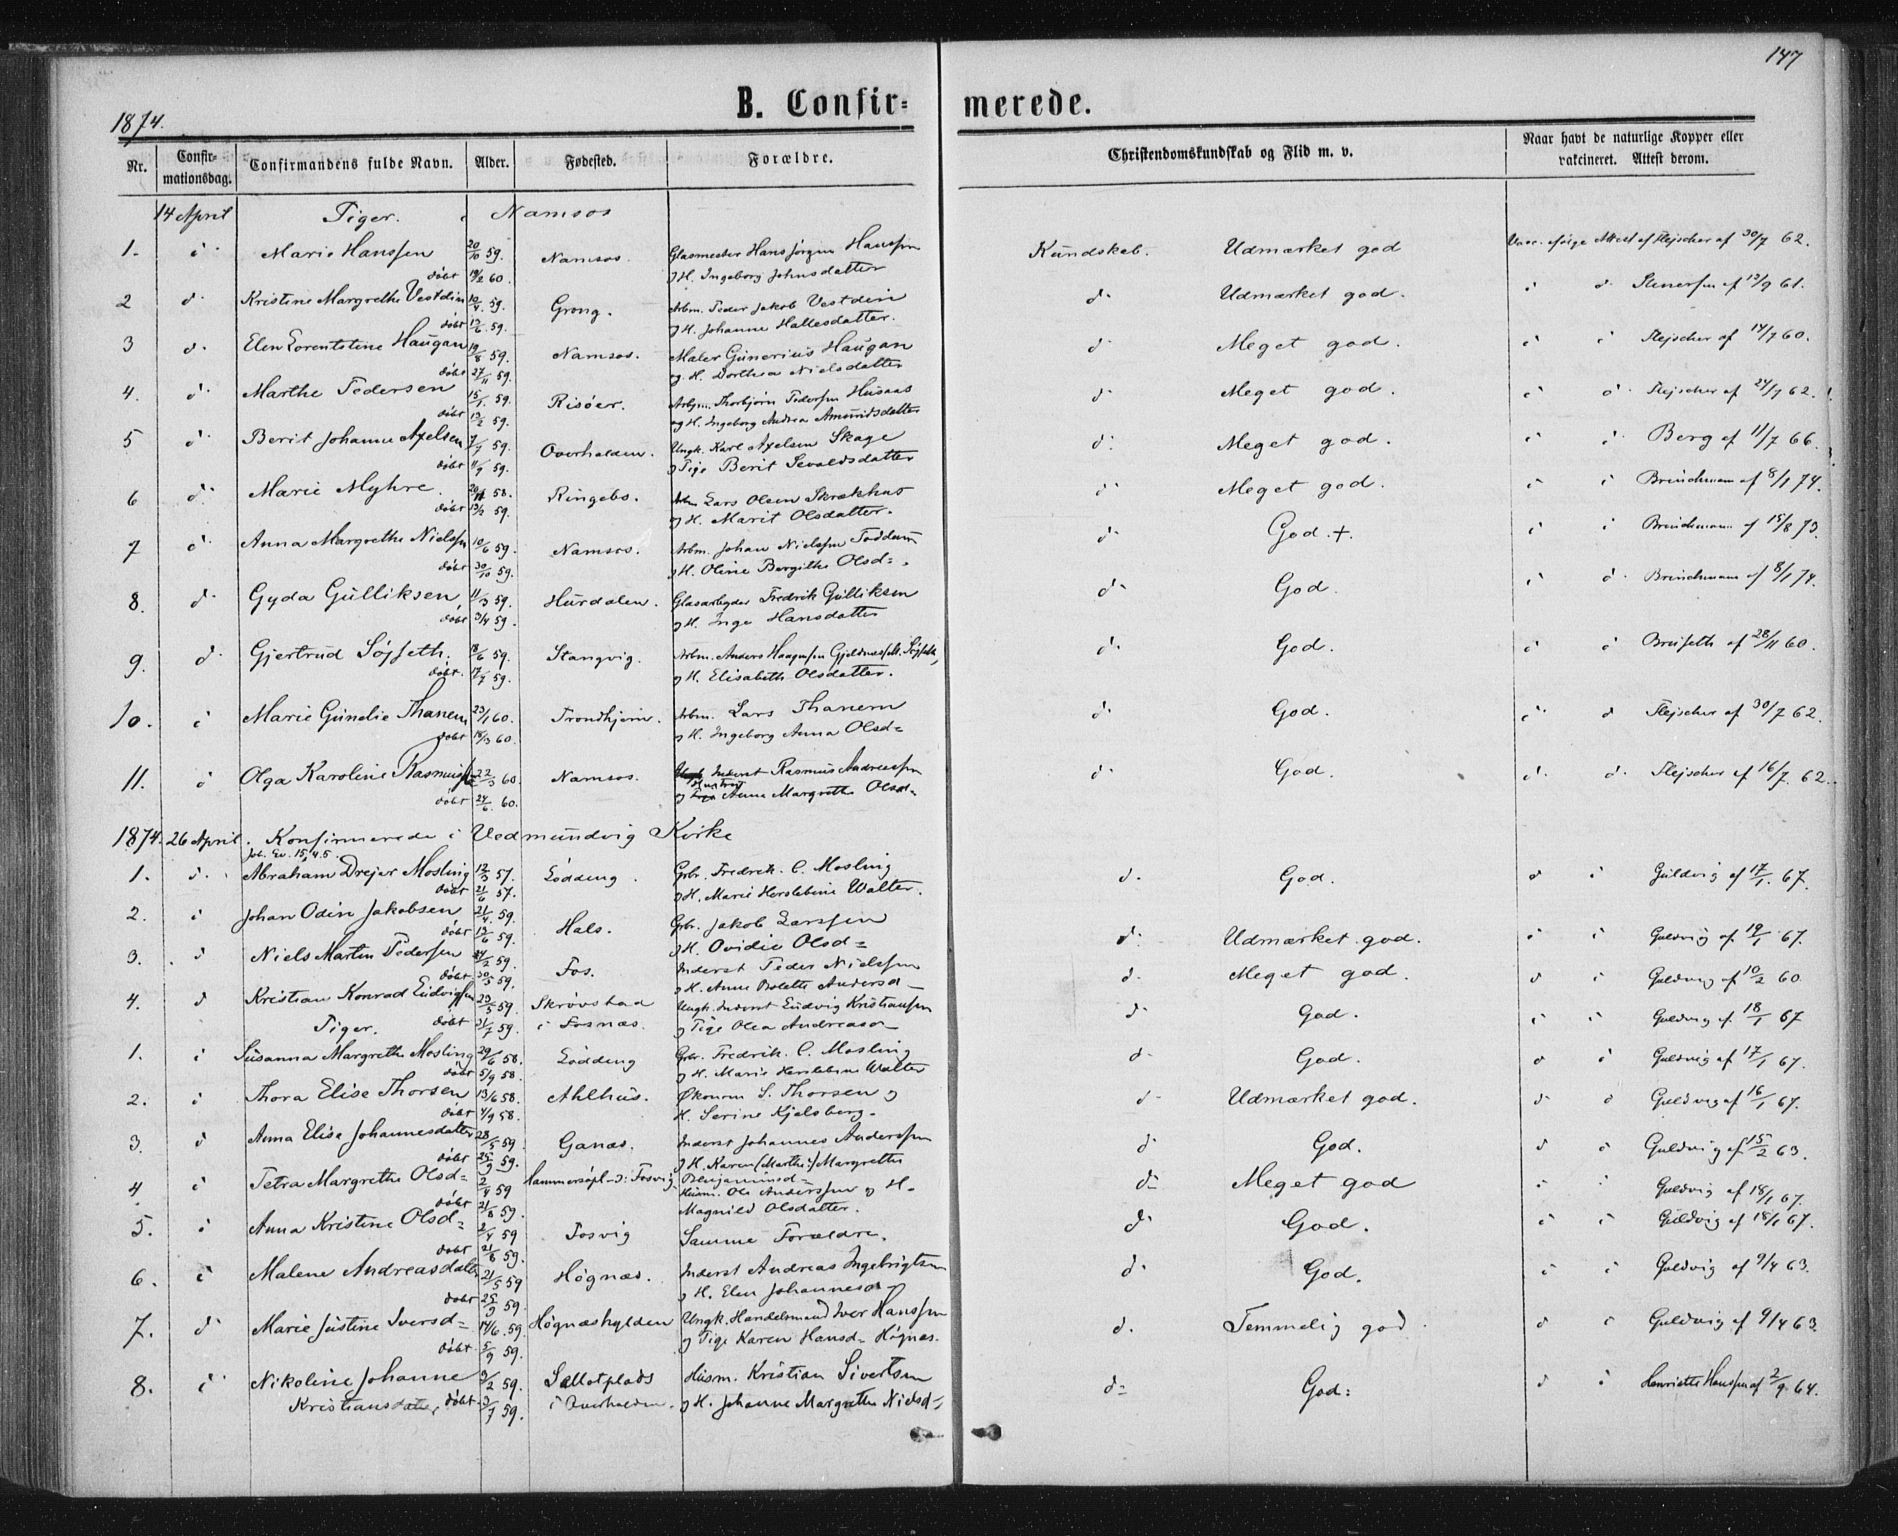 147
1874.
B. Confir=
merede.
Nr.
Confir=
mationsdag.
Confirmandens fulde Navn.
Alder.
Fødested.
Forældre.
Christendomskundskab og Flid m. v.
Naar havt de naturlige Kopper eller
vakcineret. Attest derom.
14 April Piger. i Namsos
1. Marie Hanssen 20/10 59. Namsos. Glasmester Hans Jørgen Hanssen Kundskab. Udmærket god Vacc. ifølge Attest af Flejscher af 30/7 62.
døbt 19/2 60. og H. Ingeborg Johnsdatter
2 Kristine Margrethe Vestdin 10/4 59. Grong. Arbm. Peder Jakob Vestdin Udmærket god. Stenersen af 13/9 61.
døbt 13/6 59. og H. Johanne Hallesdatter.
3 Elen Lorentstine Haugan 19/8 59. Namsos. Maler Gunerius Haugan Meget god. Flejscher af 14/7 60.
døbt 27/11 59. og H. Dorthea Nielsdatter
4. Marthe Pedersen 15/1 59. Risøer. Arbjm. Thorbjørn Pedersen Husaas Meget god. Flejscher af 24/7 62.
døbt 13/2 59. og H. Ingeborg Andrea Amundsdatter
5 Berit Johanne Axelsen 7/7 59. Overhalden. Ungk. Karl Axelsen Skage Meget god. Berg af 11/7 66.
døbt 11/9 59. og Pige Berit Sevaldsdatter
6 Marie Myhre. 20/11 58. Ringebo. Arbm Lars Olsen Skrækhus Meget god. Brinchmann af 8/1 74.
døbt 13/2 59. og H. Marit Olsdatter.
7 Anna Margrethe Nielssen 10/6 59. Namsos. Arbm. Johan Nielssen Toddum God. +. Brinchmann af 15/8 73.
døbt 30/10 59. og H. Oline Bergithe Olsd=.
8. Gyda Gulliksen 11/3 59. Hurdalen. Glasarbeyder Fredrik Gulliksen God. Brinchmann af 8/1 74.
døbt 3/4 59. og H. Inge Hansdatter
9. Gjertrud Søjseth. 18/6 59. Stangvig. Arbm. Anders Haagensen God. Bruseth af 28/11 60.
døbt. 17/7 59. og H. Elisabeth Olsdatter.
10. Marie Gunelie Thanem 23/1 60. Trondhjem. Arbm. Lars Thanem God. Flejscher af 30/7 62.
døbt 18/3 60. og H. Ingeborg Anna Olsd=
11. Olga Karoline Rasmussen 22/3 60. Namsos. Inderst Rasmus Andreassen God. Flejscher af 16/7. 62.
døbt 24/6. 60. og Hustru Anne Margrethe Olsd=
1874. 26 April. Konfirmerede i Vedmundvig Kirke
Joh. Ev. 15, 4.5.
1. Abraham Drejer Mosling 12/3 57. Lødding. Grbr. Fredrik. C. Mosling God. Guldvig af 17/1. 67.
døbt 21/6 57. og H. Marie Herslebine Walter.
2. Johan Odin Jakobsen 21/4. 59. Hals. Grbr. Jakob Larssen Udmærket god. Guldvig af 19/1 67.
døbt 13/6 59. og H. Ovidie Olsd=
3. Niels Martin Pedersen 24/2 59. Fos. Inderst Peder Nielssen Meget god. Guldvig af 10/2 60
døbt 30/5 59. og H. Anne Bolette Andersd=
4. Kristian Konrad Ludvigsen 23/5 59. Skrøvstad Ungk. Inderst Ludvig Kristiansen God. Guldvig af 18/1 67
døbt 31/7 59. i Fosnæs. og Pige Olea Andreasd=
Piger.
1. Susanna Margrethe Mosling 29/6 58. Lødding Grbr. Fredrik. C. Mosling God. Guldvig af 17/1 67.
døbt 5/9 58. og H. Marie Herslebine Walter
2. Thora Elise Thorsen 13/6 58. Ahlhus. Økonom S. Thorsen og Udmærket god. Guldvig af 16/1 67.
døbt 4/9 58. H. Serine Kjelsberg.
3. Anna Elisa Johannesdatter 28/5 59. Ganæs. Inderst Johannes Anderssen God. Guldvig af 15/2 63.
døbt 25/9 59. og H. Karen (Marthe:) Margrethe
Benjaminsd=
4 Petra Margrethe Olsd= 2/4 59 Hammersøpl. i Fosvig. Husm. Ole Anderssen og H. Meget god Guldvig af 18/1 67.
døbt 21/8 59. Magnild Olsdatter.
5. Anna Kristine Olsd= 2/4 59 Fosvig Samme Forældre. God. Guldvig af 18/1 67.
døbt 21/8 59.
6. Malene Andreasdatter 21/5 59 Høgnæs. Inderst Andreas Ingebrigtsen God. Guldvig af 9/4 63.
døbt 25/9 59. og H. Elen Johannesd
7. Marie Justine Iversd= 14/6. 59. Høgnæshylden Ungk. Handelsmand Iver Hanssen Temmelig god Guldvig af 9/4 63.
døbt 5/9 59. og Pige Karen Hansd= Høgnæs.
8. Nikoline Johanne 3/2 59. Sellotplads Husm. Kristian Sivertsen God: Henriette Hanssen af 2/9 64.
Kristiansdatter, døbt 3/7 59. i Overhalden. og H. Johanne Margrethe Nielsd=